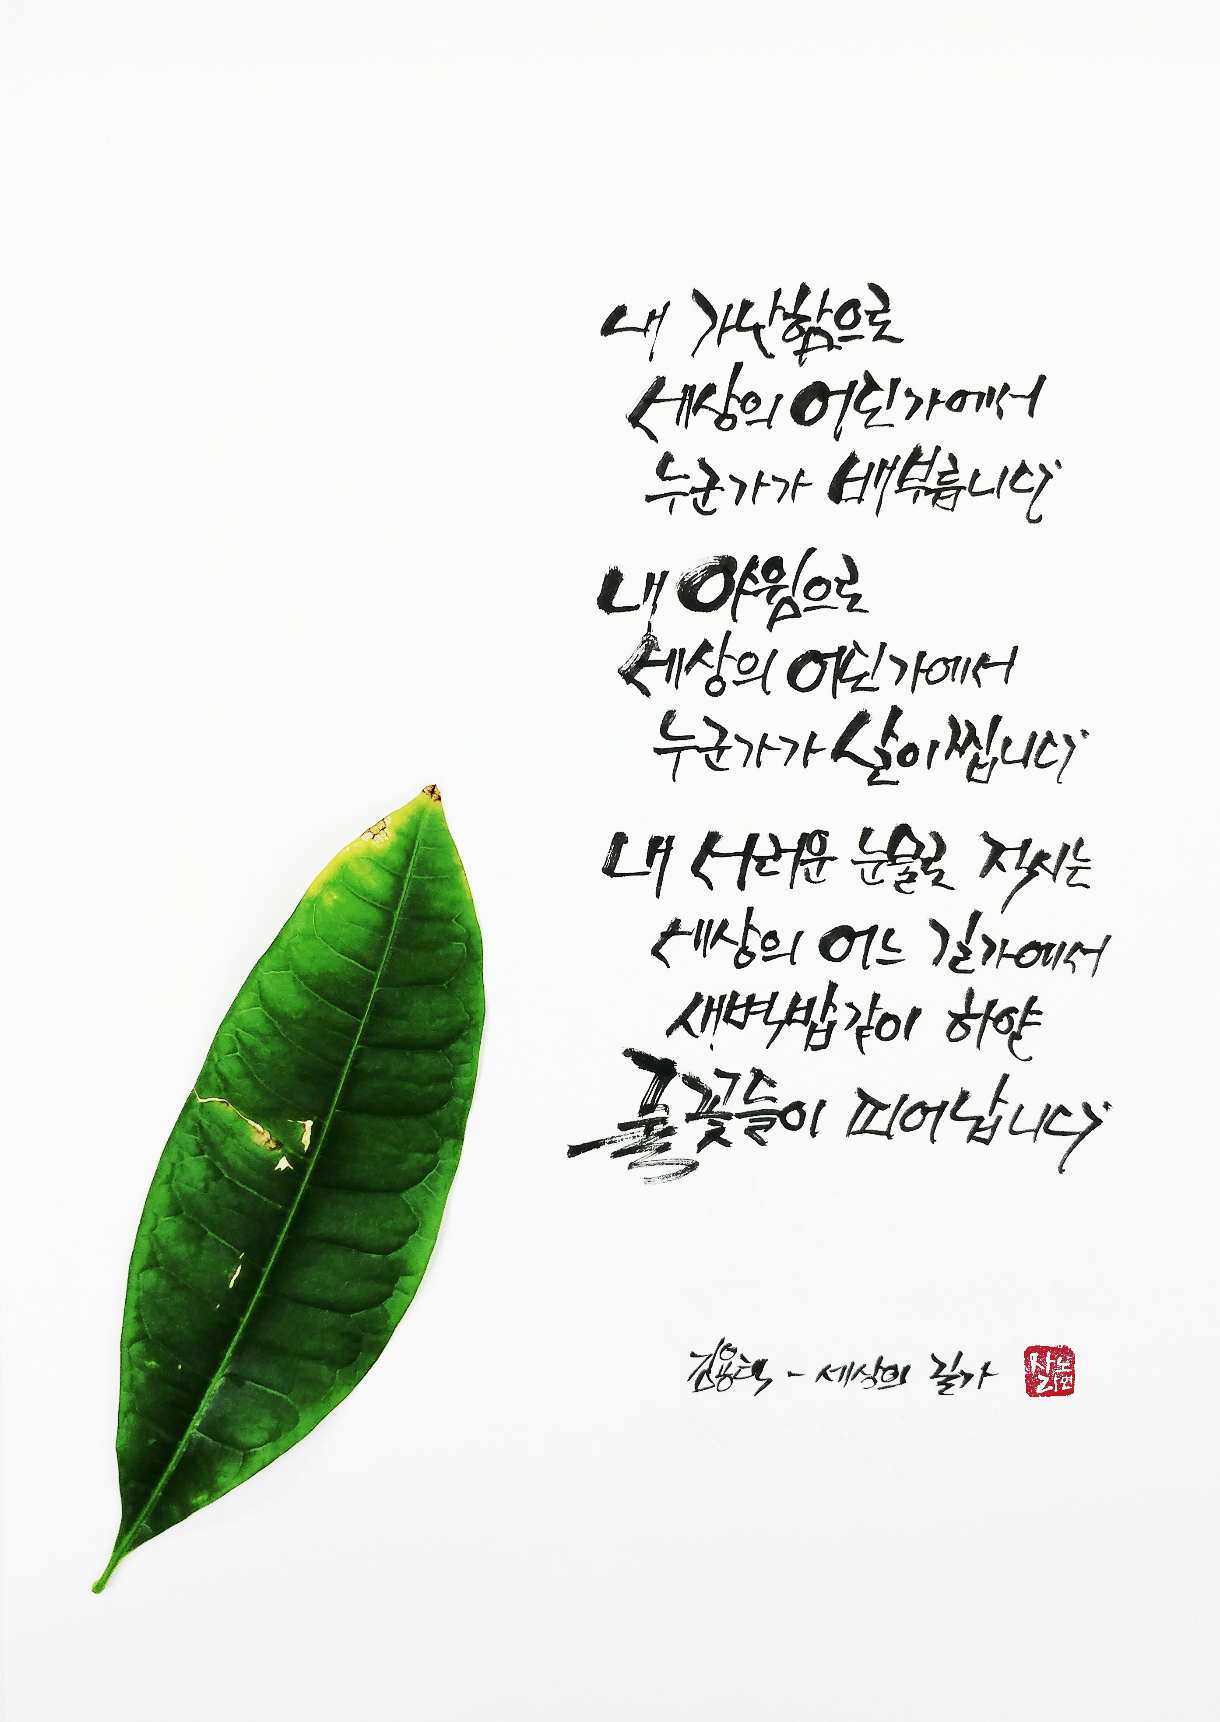 내 가난함으로
세상의 어딘가에서
누군가가 배부릅니다
내 야윔으로
세상의 어딘가에서
누군가가 살이 찝니다
내 서러운 눈물로 적시는
세상의 어느 길가에서
새벽밥같이 하얀
풀꽃들이 피어납니다
김용택 - 세상의 길가